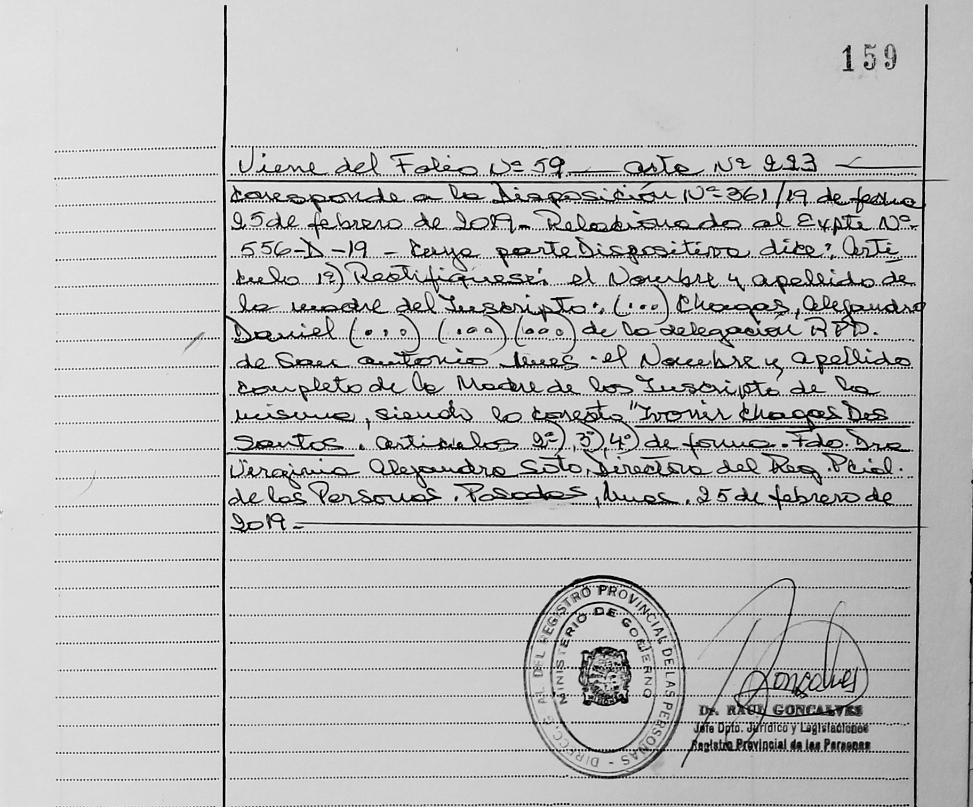 159
Viene del Folio Nº 59 — acta Nº 223 —
corresponde a la Disposición Nº 361/19 de fecha
25 de febrero de 2019 - Relacionado al Expte Nº
556-D-19 - Cuya parte Dispositiva dice: Artí
culo 1º) Rectifíquese: el Nombre y apellido de
la madre del Inscripto: (...) Chagas, Alejandro
Daniel (...) (...) (...) de la delegación RPP.
de San Antonio Mnes. el Nombre y apellido
completo de la Madre de los Inscripto de la
misma, siendo lo correcto "Ivonir Chagas Dos
Santos. Artículos 2º), 3º), 4º) de forma. Fdo. Dra
Virginia Alejandra Soto, Directora del Reg. Pcial.
de las Personas. Posadas, Mnes. 25 de febrero de
2019 -
DIRECC. G AL DEL REGISTRO PROVINCIAL DE LAS PERSONAS -
MINISTERIO DE GOBIERNO
Goncalves
Dr. RAUL GONCALVES
Jefe Dpto. Jurídico y Legislaciones
Registro Provincial de las Personas